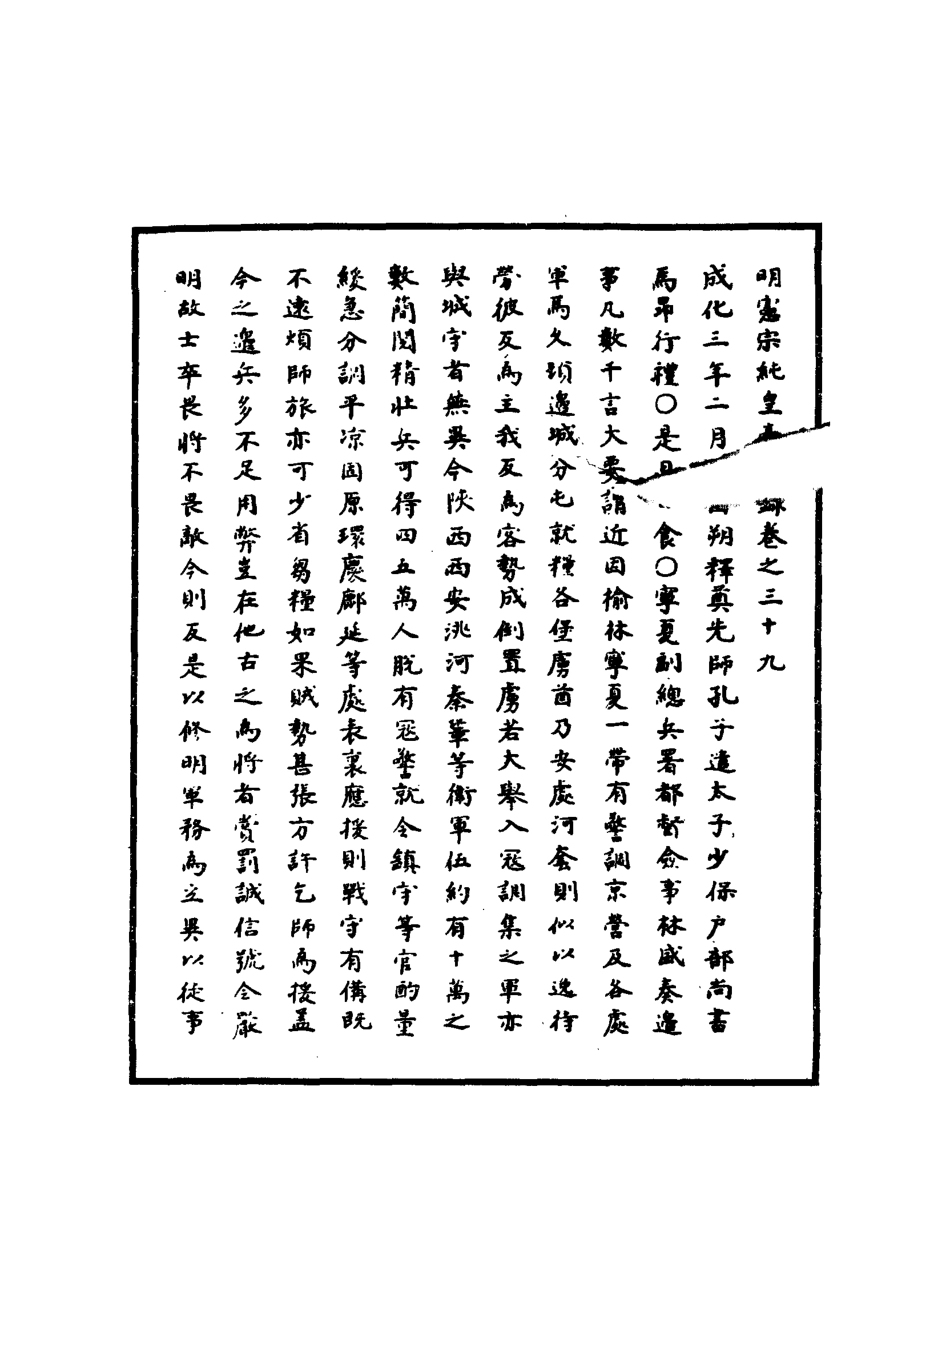 明憲宗純皇帝錄卷之三十九
成化三年二月朔釋奠先師孔子遣太子少保户部尚書
馬昂行禮〇是日食〇寧夏副總兵署都督僉事林盛奏邉
事凡數千言大要謂近因榆林寧夏一帶有警調京營及各處
軍馬久頓邉城分屯就糧各堡虜酋乃安處河套則似以逸待
勞彼反為主我反為客勢成倒置虜若大舉入冦調集之軍亦
與城守者無異今陜西西安洮河秦華等衛軍伍約有十萬之
數簡閲精壯兵可得四五萬人脱有冦警就令鎮守等官酌量
緩急分調平凉固原環慶鄜延等處表裏應援則戰守有備既
不遠煩師旅亦可少省芻糧如果賊勢甚張方許乞師為援盖
今之邉兵多不足用弊豈在他古之為將者賞罰誠信號令嚴
明故士卒畏將不畏敵今則反是以修明軍務為立異以徒事